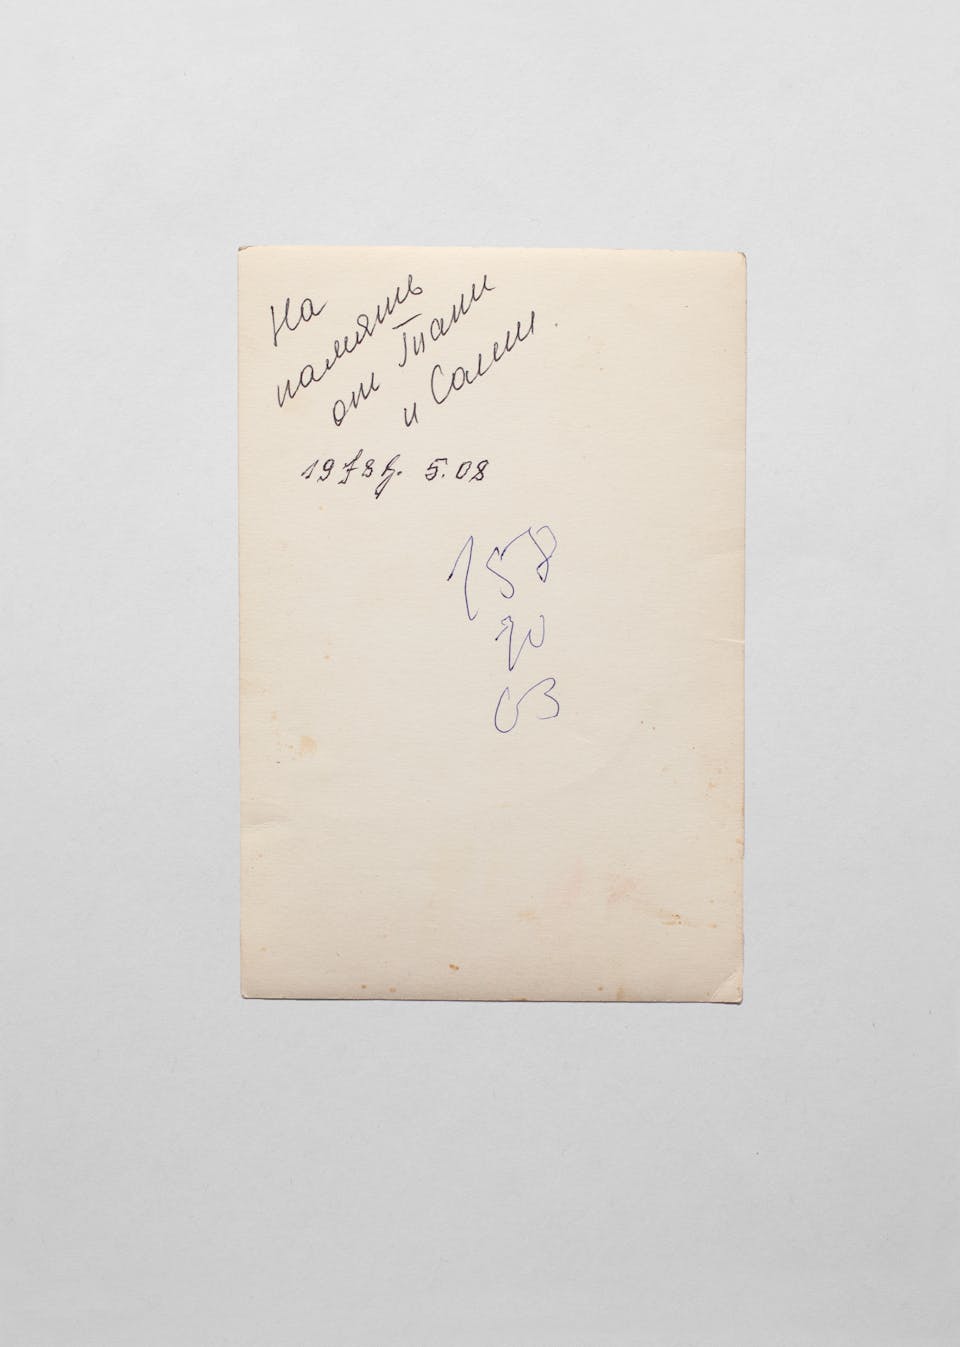 На
память
от Тани
и Саши.
1978г. 5.08
158